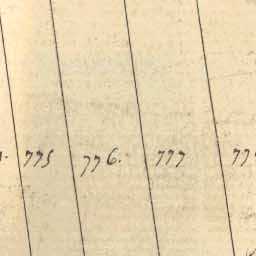 775 776. 777